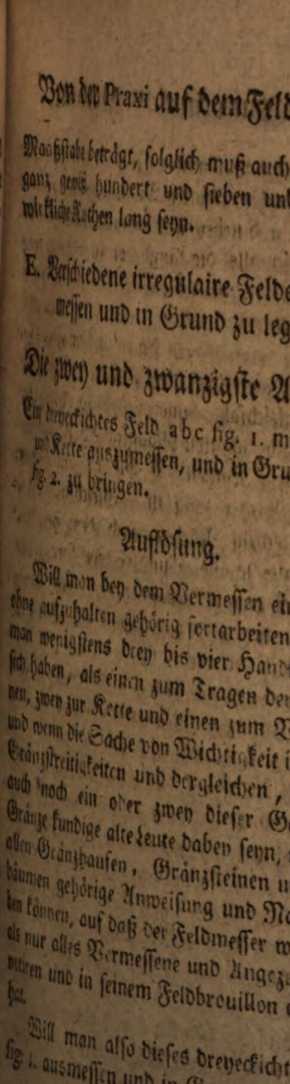 Von der Praxi auf dem Feld
Maaßstabe beträgt, folglich muß auch
ganz gewiß hundert und sieben und
wirkliche Ruthen lang seyn.
E. Verschiedene irregulaire Felde
messen und in Grund zu leg
Die zwey und zwanzigste A
Ein dreyeckichtes Feld abc fig. 1. m
Kette auszumessen, und in Gru
fig. 2. zu bringen.
Auflösung.
Will man bey dem Vermessen ei
ohne aufgehalten gehörig fortarbeiten
man wenigstens drey bis vier Hand
sich haben, als einen zum Tragen der
nen, zwey zur Kette und einen zum V
und wenn die Sache von Wichtigkeit i
Gränzstreitigkeiten und dergleichen,
auch noch ein oder zwey dieser G
Gränze kundige alte Leute dabey seyn,
allen Gränzhaufen, Gränzsteinen u
bäumen gehörige Anweisung und Na
ben können, auf daß der Feldmesser
als nur alles Vermessene und Angeze
und in seinem Feldbrouillon
hat.
Will man also dieses dreyeckicht
fig. 1. ausmessen und in G